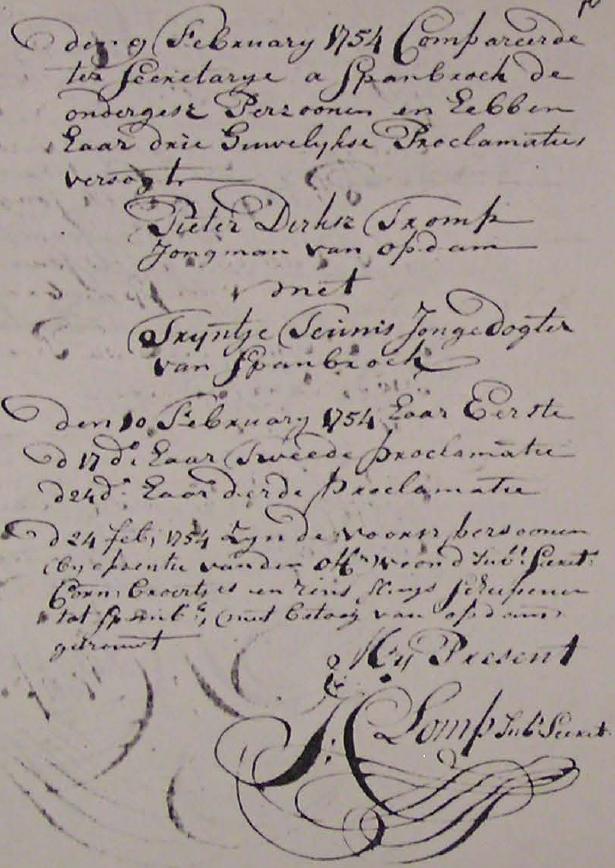 den 9 February 1754 Compareerde
ter Secretarye a Spanbroek de
ondergesz Perzoonen en hebben
haar drie Huwelykse Proclamaties
versogt
Pieter Dirksz Tromp
Jongman van opdam
met
Tryntje Teunis Jongedogter
van Spanbroek
den 10 February 1754 haar Eerste
d 17de haar Tweede proclamatie
d 24de haar derde proclamatie
d 24 feb 1754 zyn de voorsz persoonen
by absentie van den Secret
Corn en Schepenen
tot Spanb met van opdam
getrouwt
My Present
Lomp Sub Secret